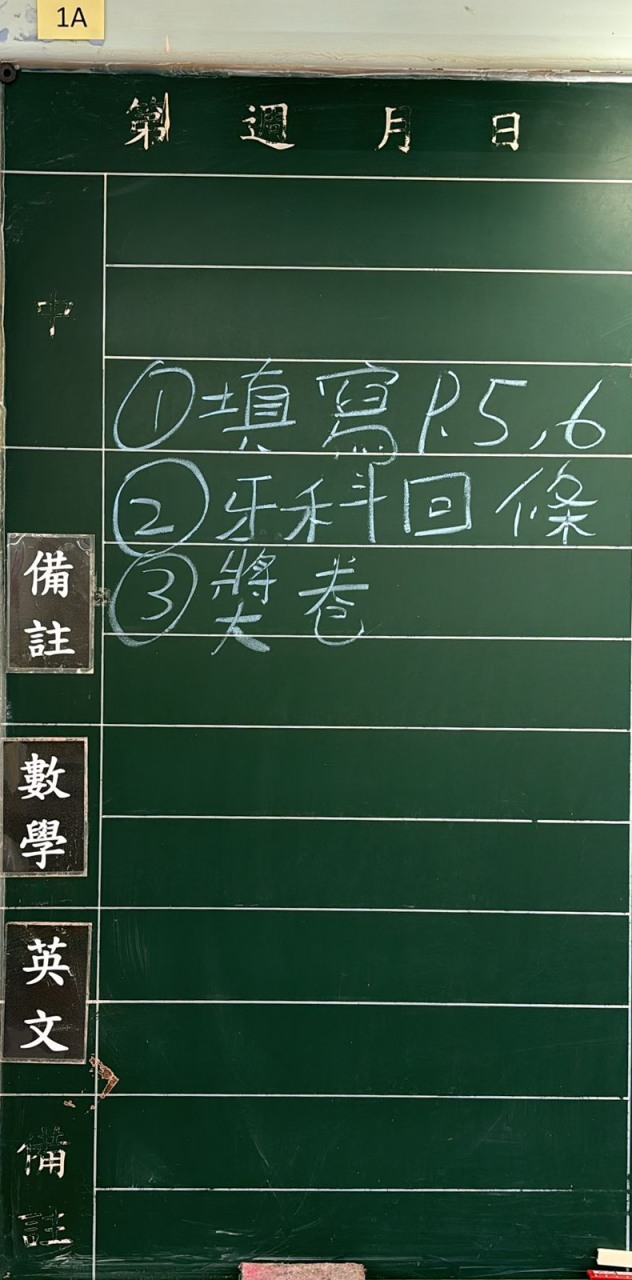 1A
第 週 月 日
中
①填寫P.5,6
②牙科回條
備註
③獎卷
數學
英文
備註